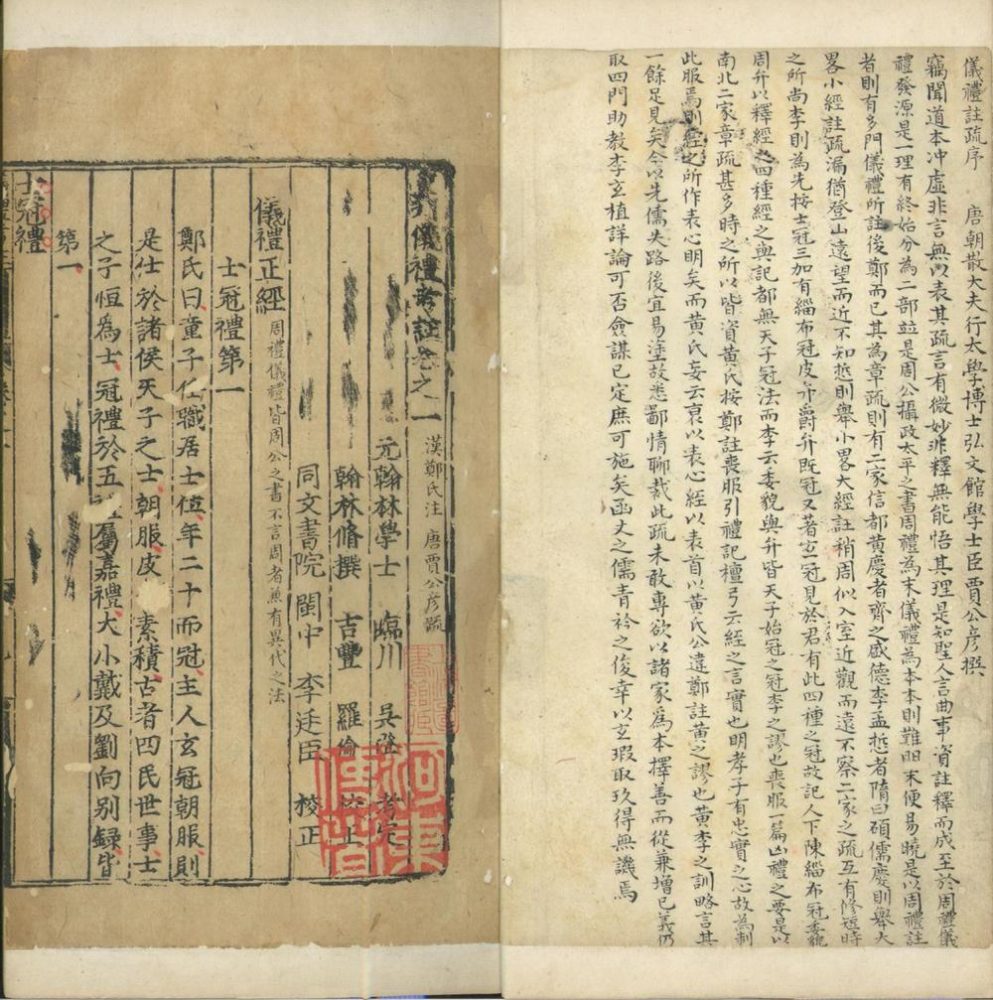 儀禮註疏序　唐朝散大夫行太學博士弘文館學士臣賈公彥撰
竊聞道本冲虛非言無以表其疏言有微妙非釋無能悟其理是知聖人言曲事資註釋而成至於周禮儀
禮發源是一理有終始分為二部並是周公攝政太平之書周禮為末儀禮為本本則難明末便易曉是以周禮註
者則有多門儀禮所註後鄭而已其為章疏則有二家信都黃慶者齊之盛德李孟悊者隋曰碩儒慶則舉大
畧小經註疏漏猶登山遠望而近不知悊則舉小畧大經註稍周似入室近觀而遠不察二家之疏互有修短時
之所尚李則為先按士冠三加有緇布冠皮弁爵弁既冠又著玄冠見於君有此四種之冠故記人下陳緇布冠委貌
周弁以釋經之四種經之與記都無天子冠法而李云委貌與弁皆天子始冠之冠李之謬也喪服一篇凶禮之要是以
南北二家章疏甚多時之所以皆資黃氏按鄭註喪服引禮記檀弓云經之言實也明孝子有忠實之心故為制
此服焉則經之所作表心明矣而黃氏妄云衰以表心經以表首以黃氏公違鄭註黃之謬也黃李之訓略言其
一餘足見矣今以先儒失路後宜易塗故悉鄙情聊裁此疏未敢專欲以諸家為本擇善而從兼增已義仍
取四門助教李玄植詳論可否僉謀已定庶可施矣函丈之儒青衿之俊幸以玄瑕取玖得無譏焉
儀禮考註卷之一　漢鄭氏注　唐賈公彥疏
元翰林學士　臨川　吳澄　考定
翰林脩撰　吉豐　羅倫　校正
同文書院　閩中　李廷臣　校正
儀禮正經　周禮儀禮皆周公之書不言周者兼有異代之法
士冠禮第一
鄭氏曰童子任職居士位年二十而冠主人玄冠朝服則
是仕於諸侯天子之士朝服皮　素積古者四民世事士
之子恒為士冠禮於五　屬嘉禮大小戴及劉向別録皆
第一
士冠禮